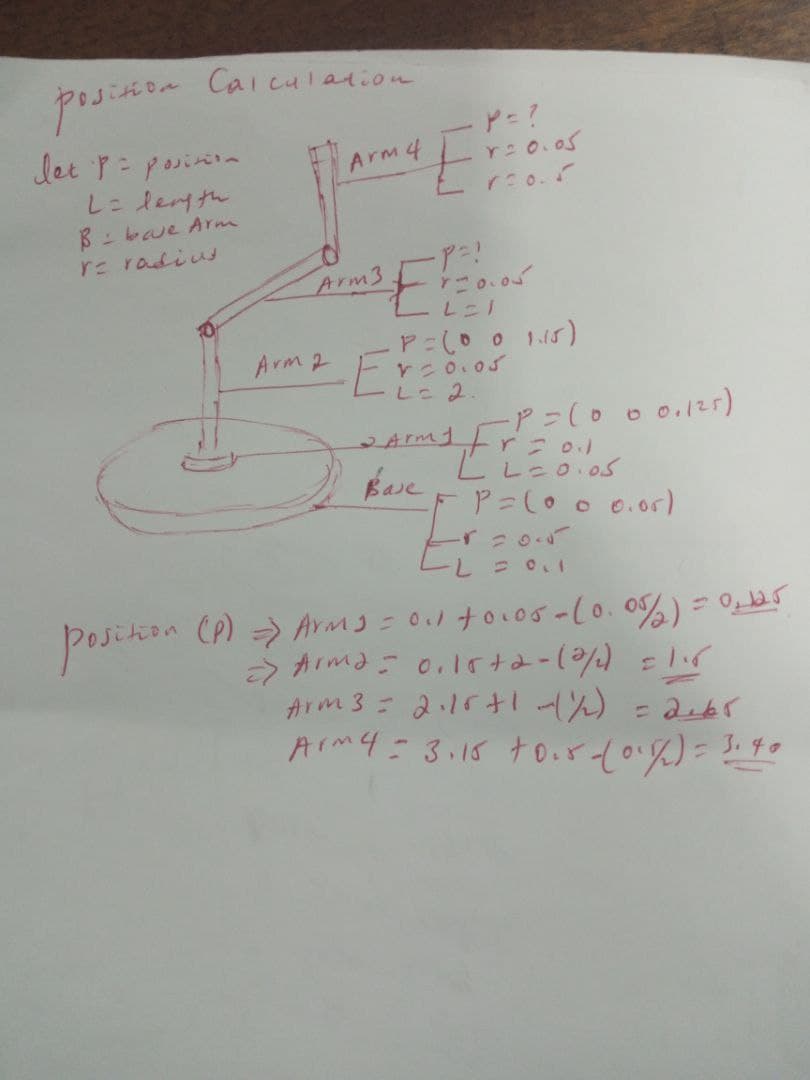 position Calculation
let P = position
L = length
B = base Arm
r = radius
Arm 4
P = ?
r = 0.05
r = 0.5
Arm 3
P = ?
r = 0.05
L = 1
Arm 2
P = (0 0 1.15)
r = 0.05
L = 2.
Arm 1
P = (0 0 0.125)
r = 0.1
L = 0.05
Base
P = (0 0 0.05)
r = 0.5
L = 0.1
position (P) ⇒ Arm 1 = 0.1 + 0.05 - (0.05/2) = 0.125
⇒ Arm 2 = 0.15 + 2 - (2/2) = 1.5
Arm 3 = 2.15 + 1 - (1/2) = 2.65
Arm 4 = 3.15 + 0.5 - (0.5/2) = 3.40